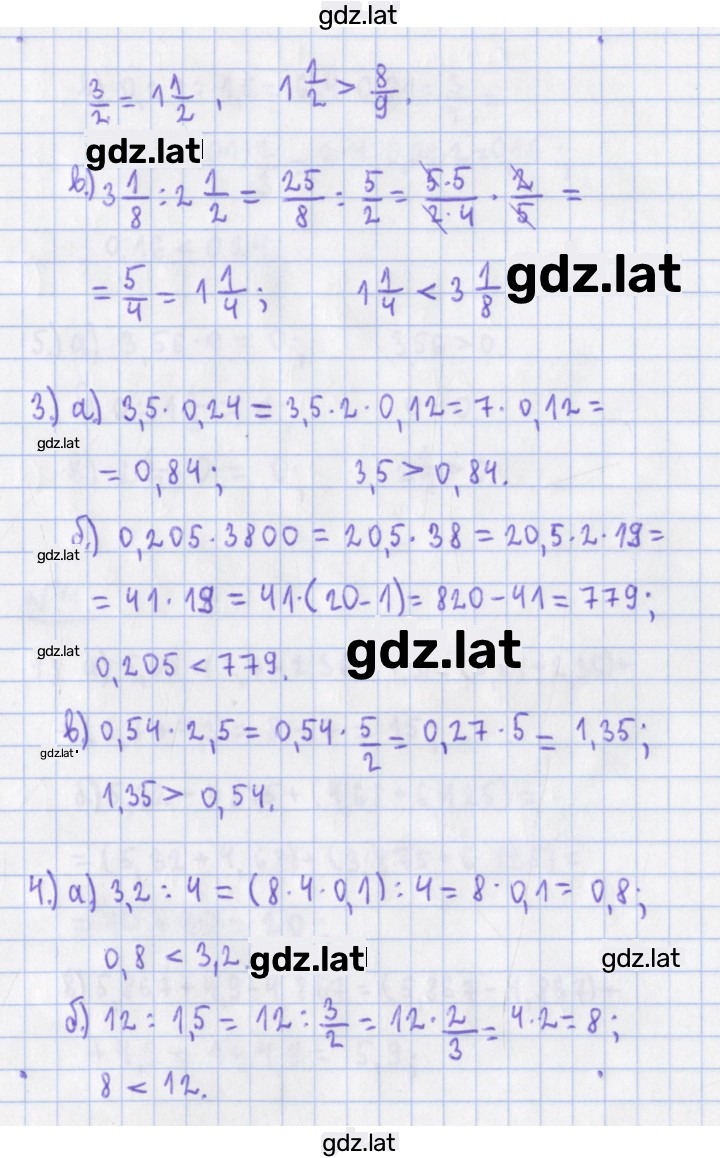 gdz.lat
3/2 = 1 1/2 , 1 1/2 > 8/9.
gdz.lat
в.) 3 1/8 : 2 1/2 = 25/8 : 5/2 = 5·5/2·4 · 2/5 =
= 5/4 = 1 1/4 ; 1 1/4 < 3 1/8
gdz.lat
3.) а.) 3,5 · 0,24 = 3,5 · 2 · 0,12 = 7 · 0,12 =
gdz.lat
= 0,84; 3,5 > 0,84.
б.) 0,205 · 3800 = 20,5 · 38 = 20,5 · 2 · 19 =
gdz.lat
= 41 · 19 = 41·(20-1) = 820 - 41 = 779;
gdz.lat
0,205 < 779.
gdz.lat
в) 0,54 · 2,5 = 0,54 · 5/2 = 0,27 · 5 = 1,35;
gdz.lat
1,35 > 0,54.
4.) а) 3,2 : 4 = (8·4·0,1) : 4 = 8 · 0,1 = 0,8;
0,8 < 3,2.
gdz.lat
gdz.lat
б.) 12 : 1,5 = 12 : 3/2 = 12 · 2/3 = 4·2 = 8;
8 < 12.
gdz.lat